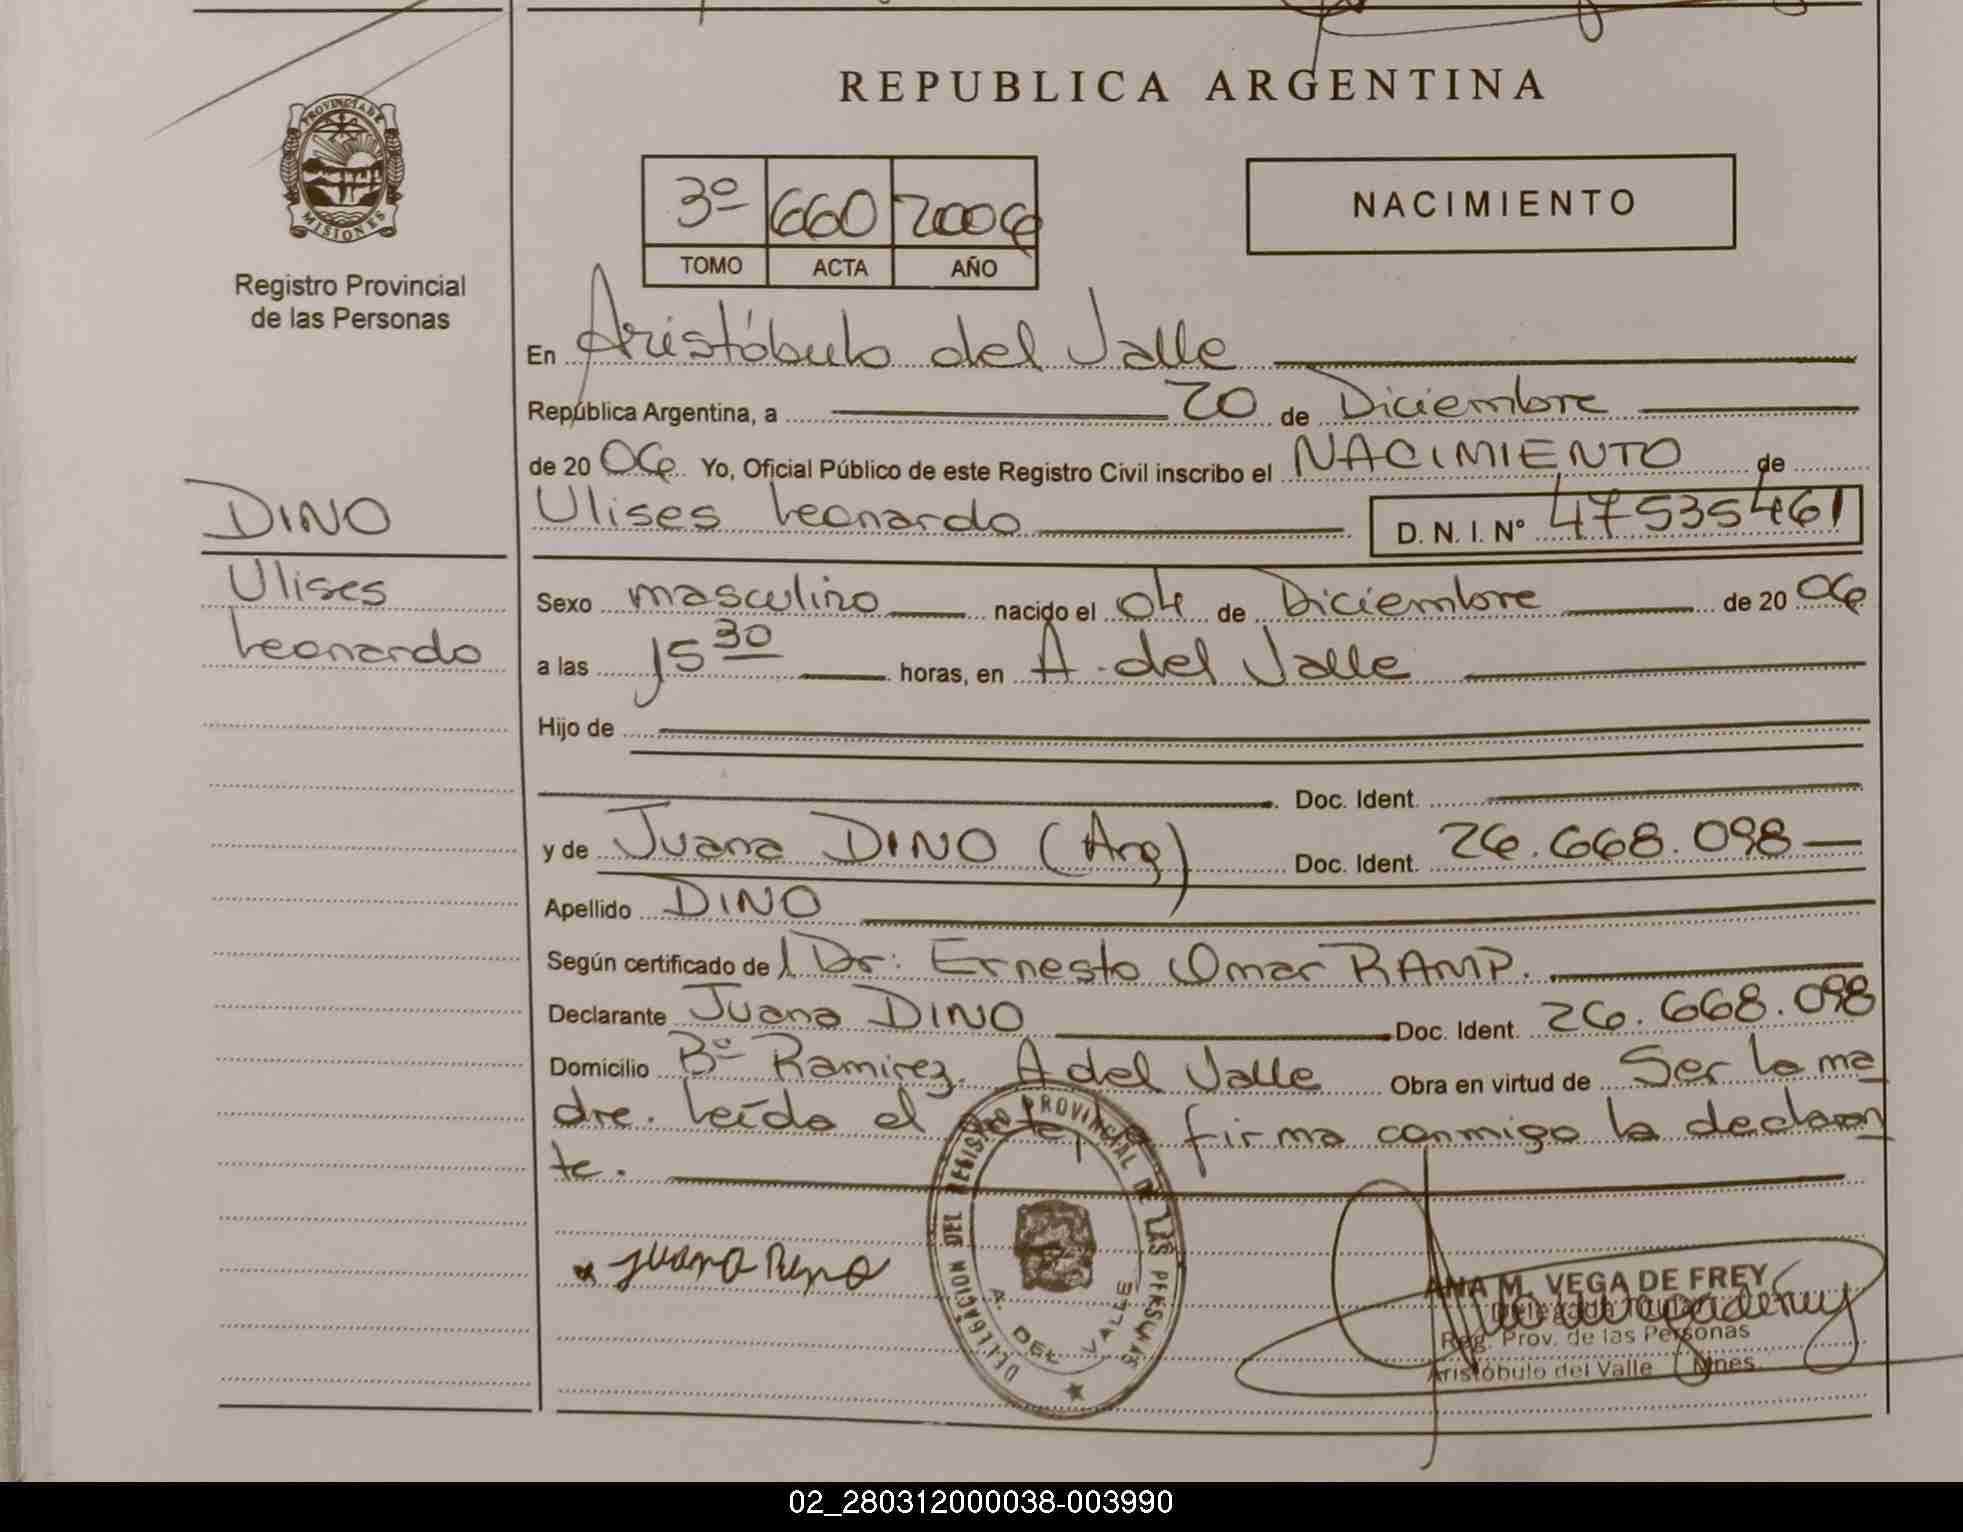 REPUBLICA ARGENTINA
PROVINCIA DE MISIONES
Registro Provincial
de las Personas
3º 660 2006
TOMO ACTA AÑO
NACIMIENTO
En Aristóbulo del Valle
República Argentina, a 20 de Diciembre
de 20 06 Yo, Oficial Público de este Registro Civil inscribo el NACIMIENTO de
DINO
Ulises Leonardo D. N. I. Nº 47535461
Ulises
Leonardo
Sexo masculino nacido el 04 de Diciembre de 20 06
a las 15 30 horas, en A. del Valle
Hijo de
Doc. Ident.
y de Juana DINO (Arg) Doc. Ident. 26.668.098
Apellido DINO
Según certificado del Dr: Ernesto Omar RAMP.
Declarante Juana DINO Doc. Ident. 26.668.098
Domicilio Bº Ramirez. A del Valle Obra en virtud de Ser la ma
dre. Leída el acta, firma conmigo la declaran
te.
DELEGACION DEL REGISTRO PROVINCIAL DE LAS PERSONAS
A. DEL VALLE
Juana
ANA M. VEGA DE FREY
Reg. Prov. de las Personas
Aristóbulo del Valle Mnes.
02_280312000038-003990